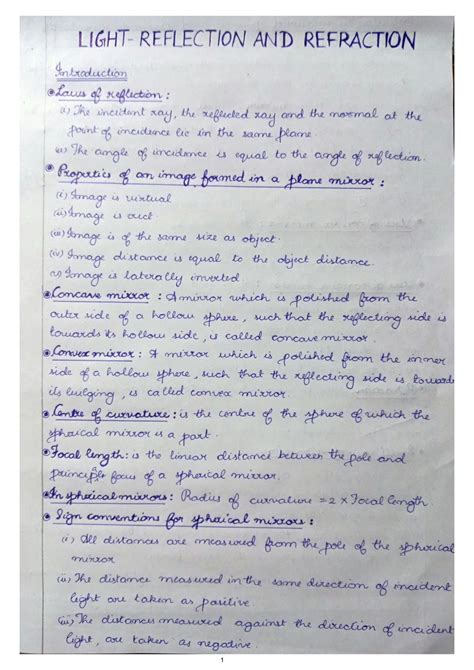 LIGHT-REFLECTION AND REFRACTION
Introduction
Laws of reflection :
(i) The incident ray, the reflected ray and the normal at the
point of incidence lie in the same plane.
(ii) The angle of incidence is equal to the angle of reflection.
Properties of an image formed in a plane mirror :
(i) Image is virtual
(ii) Image is erect
(iii) Image is of the same size as object.
(iv) Image distance is equal to the object distance.
(v) Image is laterally inverted.
Concave mirror : A mirror which is polished from the
outer side of a hollow sphere, such that the reflecting side is
towards its hollow side, is called concave mirror.
Convex mirror : A mirror which is polished from the inner
side of a hollow sphere, such that the reflecting side is towards
its bulging, is called convex mirror.
Centre of curvature : is the centre of the sphere of which the
spherical mirror is a part.
Focal length : is the linear distance between the pole and
principle focus of a spherical mirror.
In spherical mirrors : Radius of curvature = 2 x Focal length
Sign conventions for spherical mirrors :
(i) All distances are measured from the pole of the spherical
mirror
(ii) The distance measured in the same direction of incident
light are taken as positive
(iii) The distances measured against the direction of incident
light, are taken as negative.
1